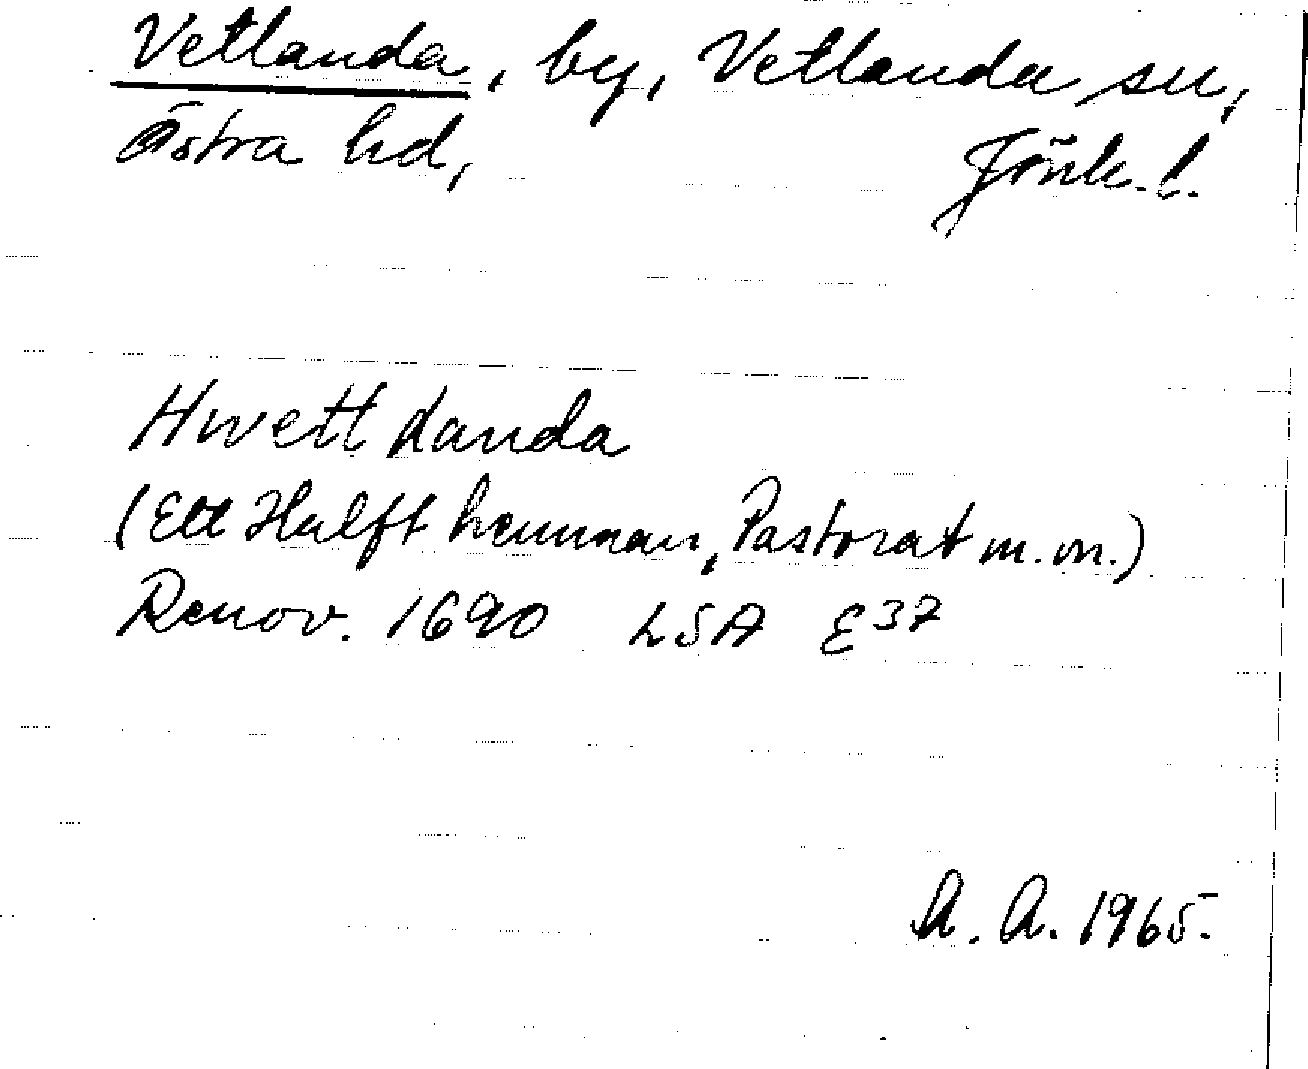 Vetlanda, by, Vetlanda sn,
Östra hd, Jönk. l.
Hwett Landa
(Ett Halft hemman, Pastorat m.m.)
Renov. 1690 LSA E37
A. A. 1965.